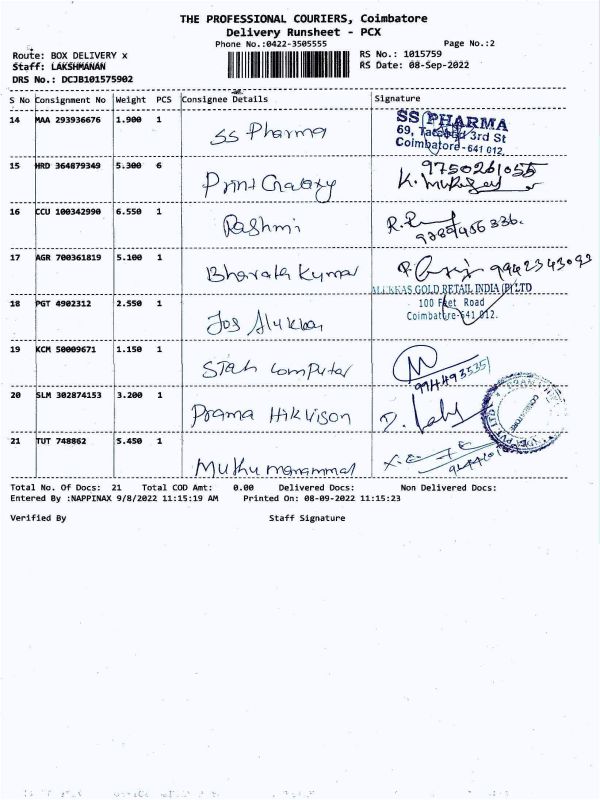 THE PROFESSIONAL COURIERS, Coimbatore
Delivery Runsheet - PCX
Phone No.:0422-3505555 Page No.:2
Route: BOX DELIVERY x RS No.: 1015759
Staff: LAKSHMANAN RS Date: 08-Sep-2022
DRS No.: DCJB101575902
S No Consignment No Weight PCS Consignee Details Signature
14 MAA 293936676 1.900 1 SS Pharma
SS PHARMA
69, Tatabad 3rd St
Coimbatore-641 012.
15 HRD 364879349 5.300 6 Print Galaxy
9750261055
K. Murugesh
16 CCU 100342990 6.550 1 Rashmi
17 AGR 700361819 5.100 1 Bharath Kumar 9942343092
18 PGT 4902312 2.550 1 Jos Alukkas
ALUKKAS GOLD RETAIL INDIA (P) LTD
100 Feet Road
Coimbatore-641 012.
19 KCM 50009671 1.150 1 Star Computer
20 SLM 302874153 3.200 1 Prama Hikvison
21 TUT 748862 5.450 1 Muthu manammal
Total No. Of Docs: 21 Total COD Amt: 0.00 Delivered Docs: Non Delivered Docs:
Entered By :NAPPINAX 9/8/2022 11:15:19 AM Printed On: 08-09-2022 11:15:23
Verified By Staff Signature